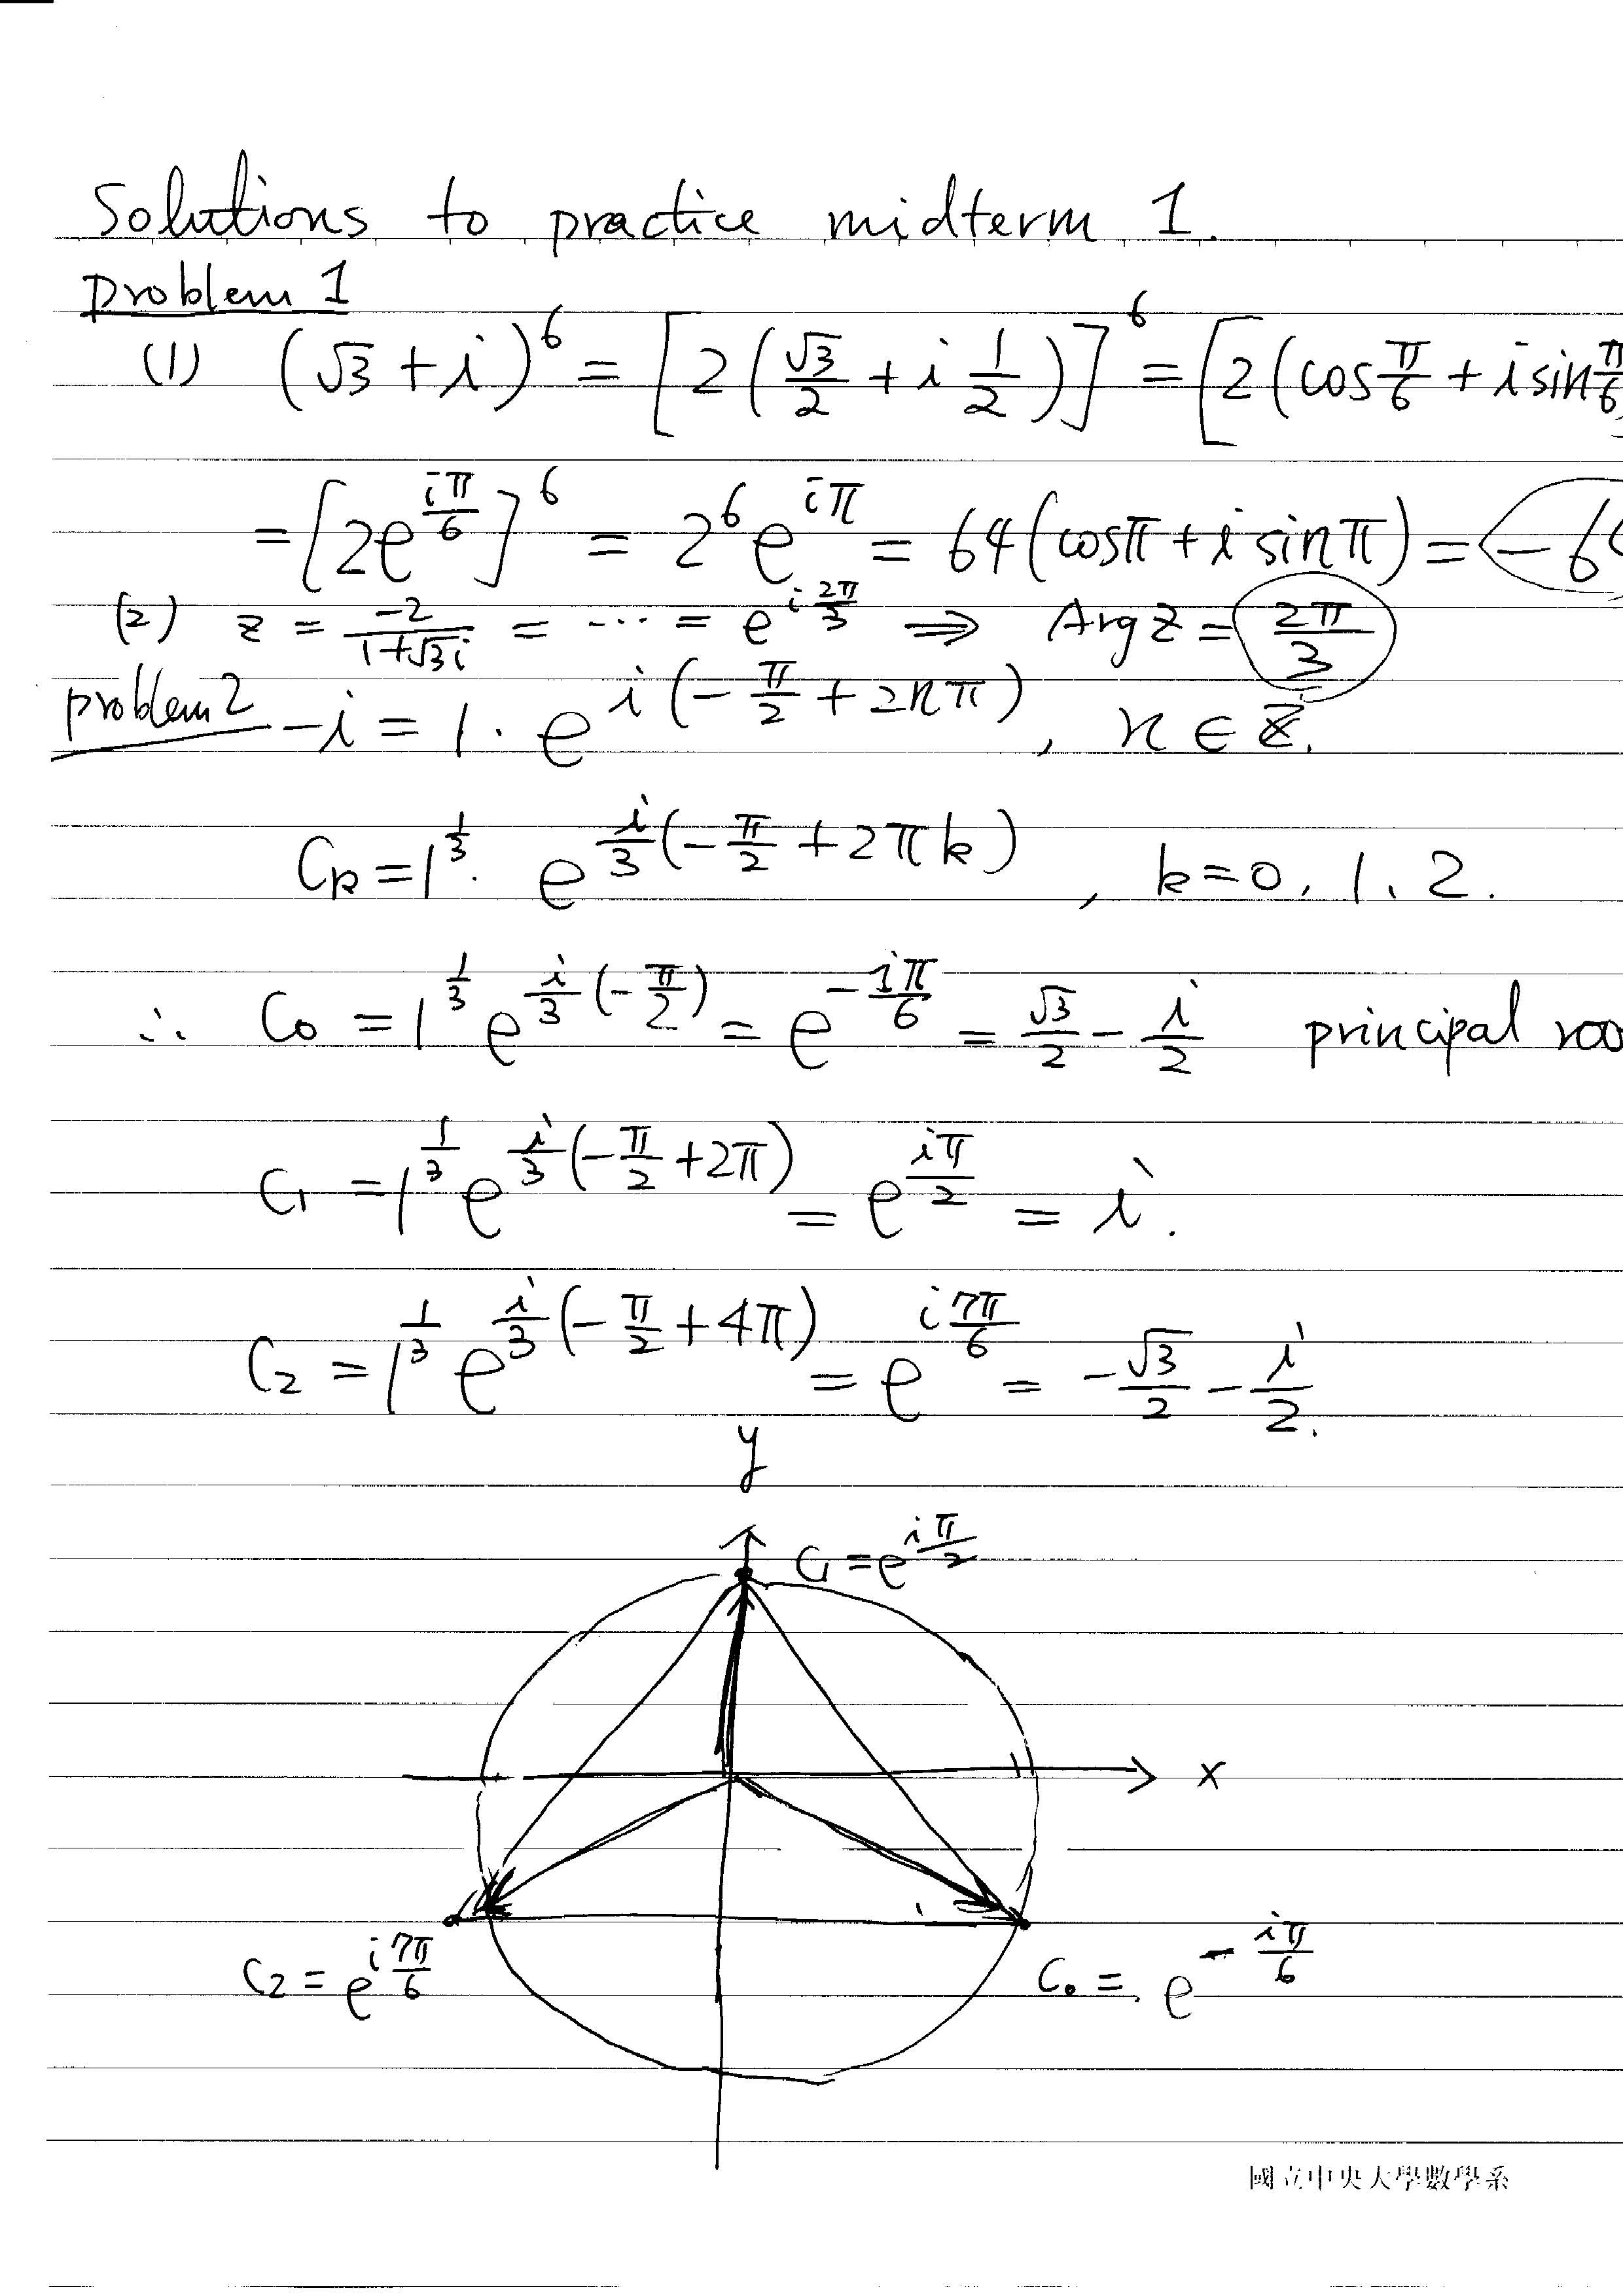 Solutions to practice midterm 1.
problem 1
(1) (√3 + i)^6 = [2(√3/2 + i 1/2)]^6 = [2(cos π/6 + i sin π/6
= [2e^{iπ/6}]^6 = 2^6 e^{iπ} = 64(cosπ + i sinπ) = -6
(2) z = -2/(1+√3i) = ... = e^{i 2π/3} ⇒ Arg z = 2π/3
problem 2 -i = 1 · e^{i(-π/2 + 2nπ)}, n ∈ Z.
C_k = 1^{1/3} · e^{i/3(-π/2 + 2πk)}, k = 0, 1, 2.
∴ C_0 = 1^{1/3} e^{i/3(-π/2)} = e^{-iπ/6} = √3/2 - i/2 principal roo
C_1 = 1^{1/3} e^{i/3(-π/2 + 2π)} = e^{iπ/2} = i.
C_2 = 1^{1/3} e^{i/3(-π/2 + 4π)} = e^{i7π/6} = -√3/2 - i/2.
y
C_1 = e^{iπ/2}
x
C_2 = e^{i7π/6}
C_0 = e^{-iπ/6}
國立中央大學數學系